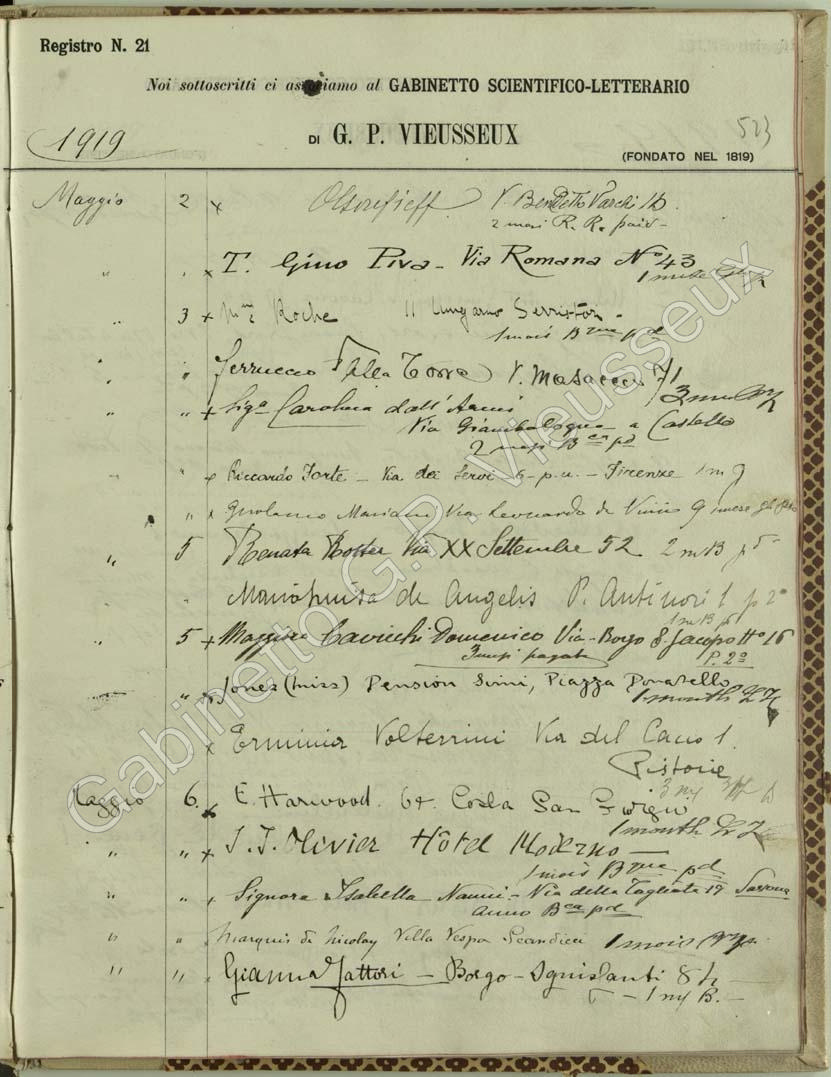 Registro N. 21
Noi sottoscritti ci associamo al GABINETTO SCIENTIFICO-LETTERARIO
523
1919
DI G. P. VIEUSSEUX
(FONDATO NEL 1819)
Maggio 2 x V. Benedetto Varchi 16.
2 mesi R. R. paid
" " x T. Gino Piva - Via Romana No 43
" 3 x Mme Roche 11 Lungarno Serristori -
1 mois Bque pd
" " Ferruccio Della Torre V. Masaccio 71
" " x Siga Carolina dall'Armi
Via Giambologna a Castello
2 mesi Bca pd
" x Riccardo Forte - Via dei Servi 6 - p.u. - Firenze 1 m
" x Girolamo Mariani Via Leonardo da Vinci 9
" 5 Renata Rotter Via XX Settembre 52 2 m B
" Maria Luisa de Angelis P. Antinori 1 p 2o
1 m B pd
" 5 x Maggiore Cavicchi Domenico Via - Borgo S. Jacopo No 16
3 mesi pagato P. 2o
" x Jones (miss) Pension Simi, Piazza Donatello
1 month
x Erminia Volterrini Via del Cacio 1.
Pistoia
Maggio 6. x E. Harwood. 64. Costa San Giorgio
1 month
" " x J. J. Olivier Hôtel Moderno -
1 mois Bque pd
" " Signora Isabella Nanni - Via della Tagliata 19 Savona
anno Bca pd
" " Marquis de Nicolay Villa Vespa Scandicci 1 mois
" " Gianna Fattori - Borgo - Ognissanti 8
1 m B. -
Gabinetto G. P. Vieusseux